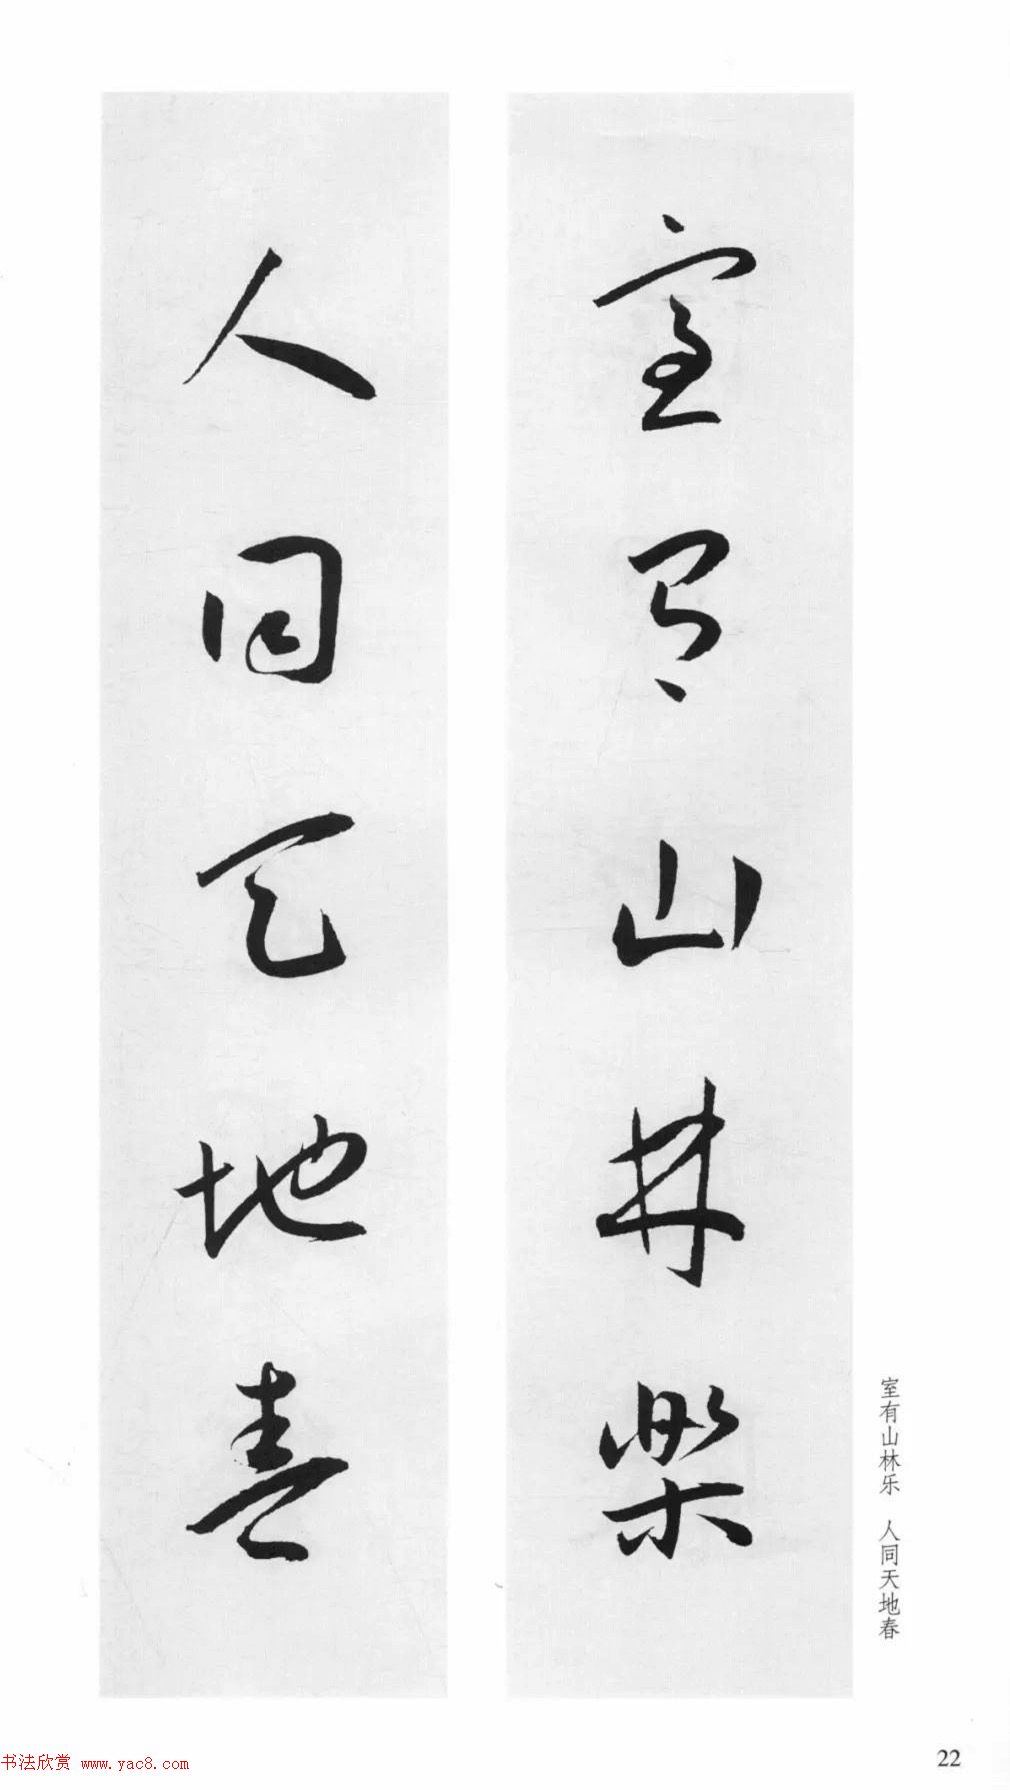 室有山林樂
人同天地春
室有山林乐　人同天地春
书法欣赏 www.yac8.com
22